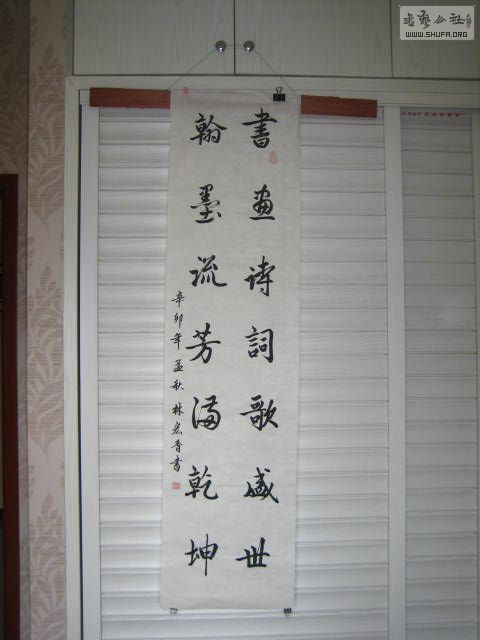 書畫诗詞歌盛世
翰墨流芳滿乾坤
辛卯年孟秋林宏青書
書藝公社
WWW.SHUFA.ORG